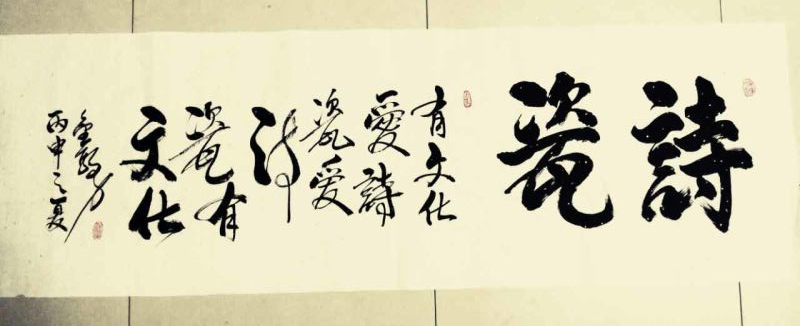 詩瓷
有文化
愛詩
瓷爱
诗
瓷有
文化
丙申之夏